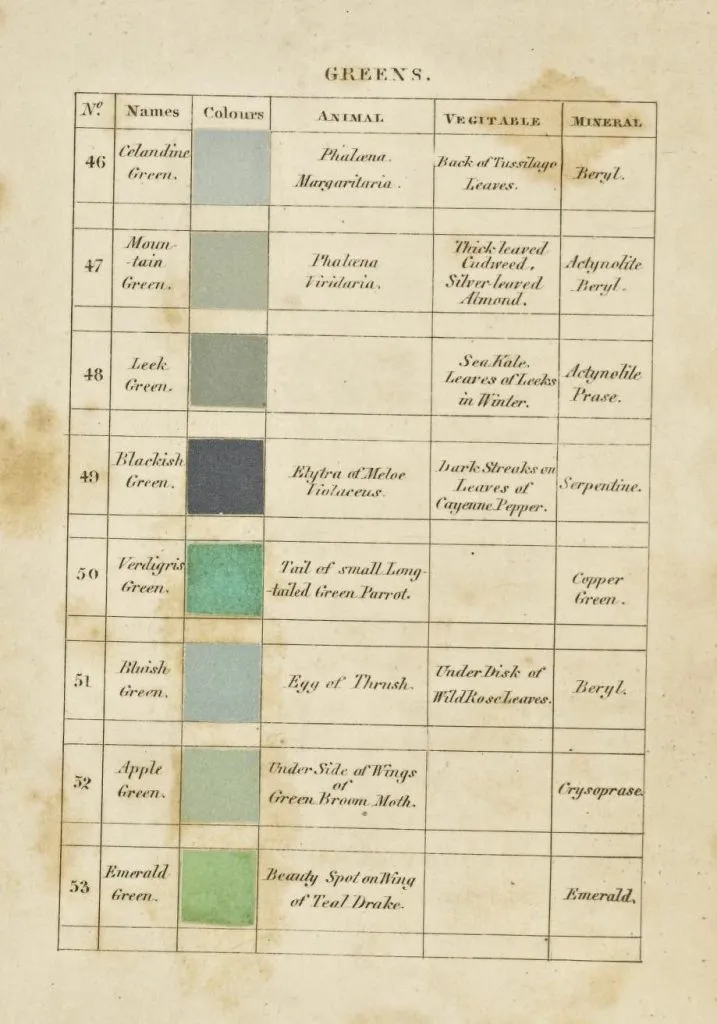 GREENS.
No. Names Colours ANIMAL VEGITABLE MINERAL
46
Celandine
Green.
Phalæna.
Margaritaria.
Back of Tussilago
Leaves.
Beryl.
47
Moun-
-tain
Green.
Phalæna
Viridaria.
Thick-leaved
Cudweed.
Silver-leaved
Almond.
Actynolite
Beryl.
48
Leek
Green.
Sea Kale.
Leaves of Leeks
in Winter.
Actynolite
Prase.
49
Blackish
Green.
Elytra of Meloe
Violaceus.
Dark Streaks on
Leaves of
Cayenne Pepper.
Serpentine.
50
Verdigris
Green.
Tail of small Long-
-tailed Green Parrot.
Copper
Green.
51
Bluish
Green.
Egg of Thrush.
Under Disk of
Wild Rose Leaves.
Beryl.
52
Apple
Green.
Under Side of Wings
of
Green Broom Moth.
Crysoprase.
53
Emerald
Green.
Beauty Spot on Wing
of Teal Drake.
Emerald.